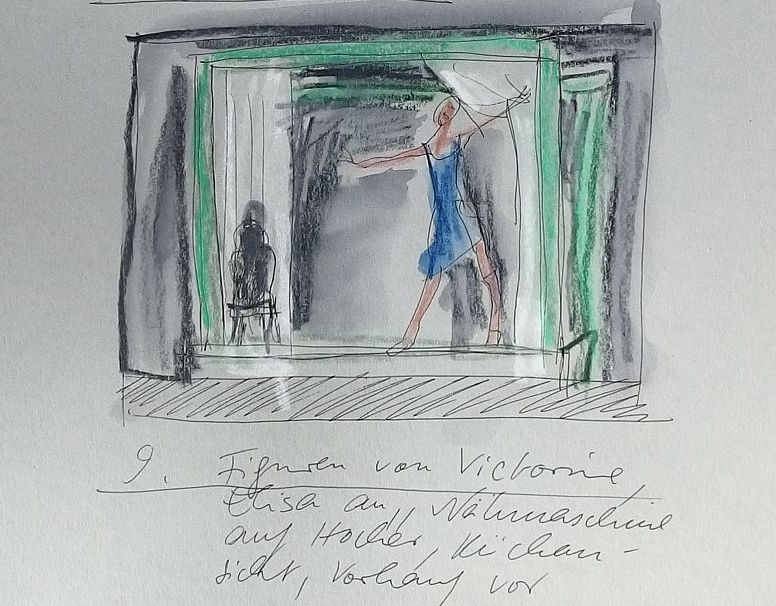 9. Figuren von Victorine,
Elisa an „ Nähmaschine
auf Hocker, Küchen-
sicht, Vorhang vor